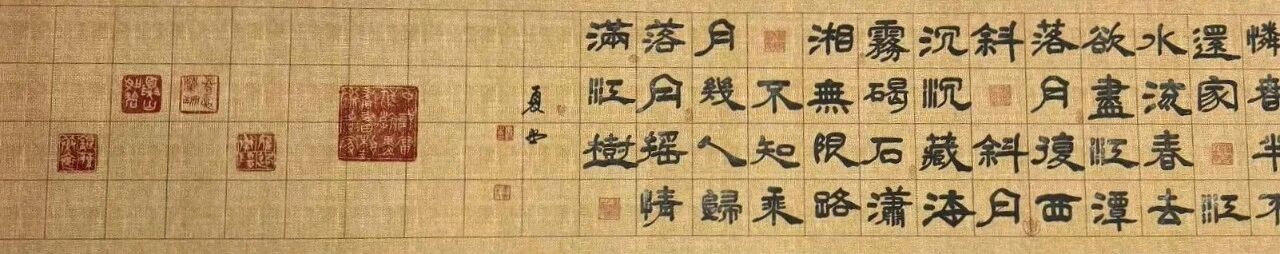 憐春半不
還家江
水流春去
欲盡江潭
落月復西
斜斜月
沉沉藏海
霧碣石瀟
湘無限路
不知乘
月幾人歸
落月搖情
滿江樹
夏